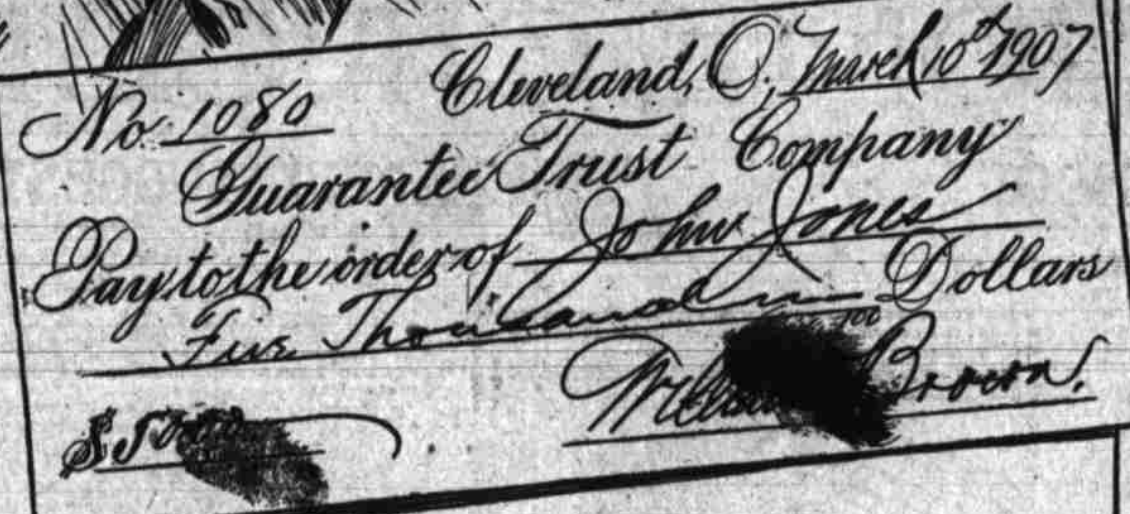 No. 1080 Cleveland, O, March 10th 1907
Guarantee Trust Company
Pay to the order of John Jones
Five Thousand Dollars
Brown.
$ 5000